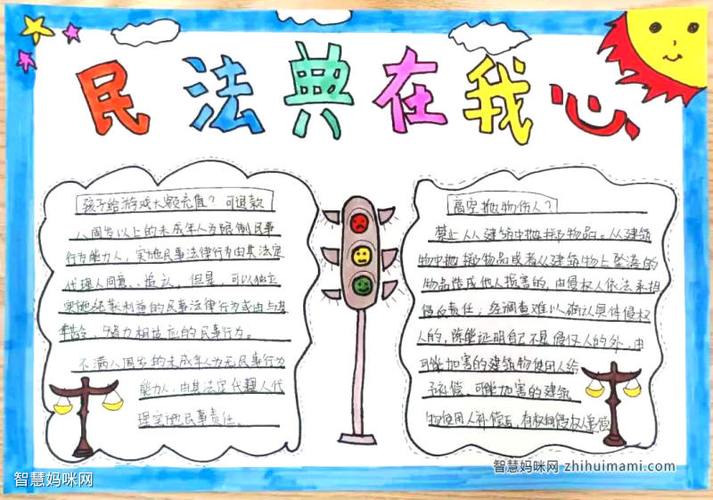 民法典在我心
孩子给游戏大额充值？可退款
八周岁以上的未成年人为限制民事
行为能力人，实施民事法律行为由其法定
代理人同意、追认，但是，可以独立
实施纯获利益的民事法律行为或由与其
年龄、智力相适应的民事行为。
不满八周岁的未成年人为无民事行为
能力人，由其法定代理人代
理实施民事责任。
高空抛物伤人？
禁止从建筑中抛掷物品。从建筑
物中抛掷物品或者从建筑物上坠落的
物品造成他人损害的，由侵权人依法承担
侵权责任；经调查难以确认具体侵权
人的，除能证明自己不是侵权人的外，由
可能加害的建筑物使用人给
予补偿。可能加害的建筑
物使用人补偿后，有权向侵权人追偿
智慧妈咪网
智慧妈咪网 zhihuimami.com